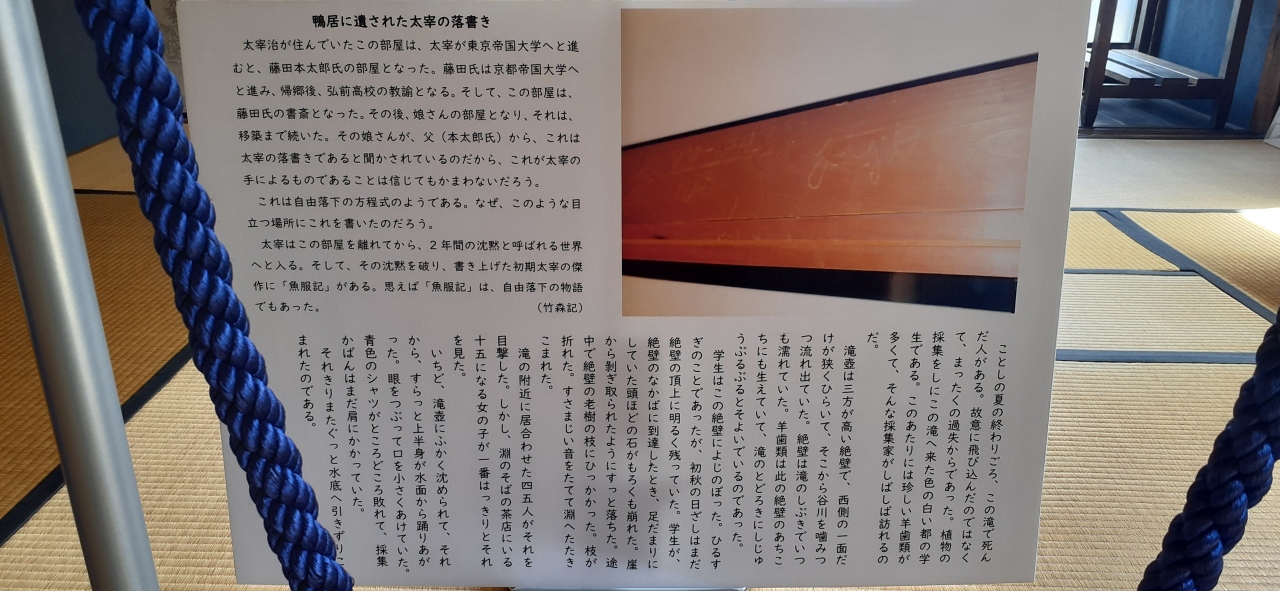 鴨居に遺された太宰の落書き
太宰治が住んでいたこの部屋は、太宰が東京帝国大学へと進
むと、藤田本太郎氏の部屋となった。藤田氏は京都帝国大学へ
と進み、帰郷後、弘前高校の教諭となる。そして、この部屋は、
藤田氏の書斎となった。その後、娘さんの部屋となり、それは、
移築まで続いた。その娘さんが、父（本太郎氏）から、これは
太宰の落書きであると聞かされているのだから、これが太宰の
手によるものであることは信じてもかまわないだろう。
これは自由落下の方程式のようである。なぜ、このような目
立つ場所にこれを書いたのだろう。
太宰はこの部屋を離れてから、２年間の沈黙と呼ばれる世界
へと入る。そして、その沈黙を破り、書き上げた初期太宰の傑
作に「魚服記」がある。思えば「魚服記」は、自由落下の物語
でもあった。（竹森記）
ことしの夏の終わりごろ、この滝で死ん
だ人がある。故意に飛び込んだのではなく
て、まったくの過失からであった。植物の
採集をしにこの滝へ来た色の白い都の学
生である。このあたりには珍しい羊歯類が
多くて、そんな採集家がしばしば訪れるの
だ。
滝壺は三方が高い絶壁で、西側の一面だ
けが狭くひらいて、そこから谷川を噛みつ
つ流れ出ていた。絶壁は滝のしぶきでいつ
も濡れていた。羊歯類は此の絶壁のあちこ
ちにも生えていて、滝のとどろきにしじゅ
うぶるぶるとそよいでいるのであった。
学生はこの絶壁によじのぼった。ひるす
ぎのことであったが、初秋の日ざしはまだ
絶壁の頂上に明るく残っていた。学生が、
絶壁のなかばに到達したとき、足だまりに
していた頭ほどの石がもろくも崩れた。崖
から剝ぎ取られたようにすっと落ちた。途
中で絶壁の老樹の枝にひっかかった。枝が
折れた。すさまじい音をたてて淵へたたき
こまれた。
滝の附近に居合わせた四五人がそれを
目撃した。しかし、淵のそばの茶店にいる
十五になる女の子が一番はっきりとそれ
を見た。
いちど、滝壺にふかく沈められて、それ
から、すらっと上半身が水面から踊りあが
った。眼をつぶって口を小さくあけていた。
青色のシャツがところどころ敗れて、採集
かばんはまだ肩にかかっていた。
それきりまたぐっと水底へ引きずりこ
まれたのである。